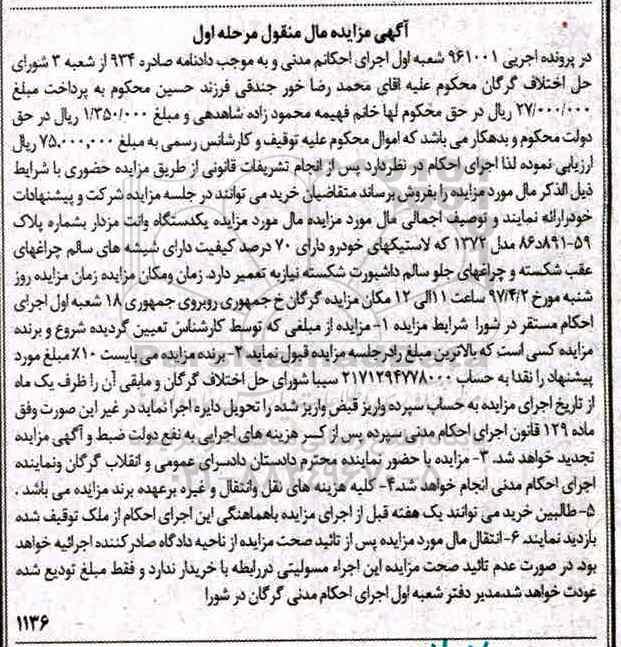 آگهی مزایده مال منقول مرحله اول
در پرونده اجریی ۹۶۱۰۰۱ شعبه اول اجرای احکانم مدنی و به موجب دادنامه صادره ۹۳۴ از شعبه ۳ شورای
حل اختلاف گرگان محکوم علیه اقای محمد رضا خور جندقی فرزند حسین محکوم به پرداخت مبلغ
۲۷/۰۰۰/۰۰۰ ریال در حق محکوم لها خانم فهیمه محمود زاده شاهدهی و مبلغ ۱/۳۵۰/۰۰۰ ریال در حق
دولت محکوم و بدهکار می باشد که اموال محکوم علیه توقیف و کارشناس رسمی به مبلغ ۷۵.۰۰۰,۰۰۰ ریال
ارزیابی نموده لذا اجرای احکام در نظردارد پس از انجام تشریفات قانونی از طریق مزایده حضوری با شرایط
ذیل الذکر مال مورد مزایده را بفروش برساند متقاضیان خرید می توانند در جلسه مزایده شرکت و پیشنهادات
خودرارائه نمایند و توصیف اجمالی مال مورد مزایده مال مورد مزایده یکدستگاه وانت مزدار بشماره پلاک
۵۹-۸۹۱د۸۶ مدل ۱۳۷۲ که لاستیکهای خودرو دارای ۷۰ درصد کیفیت دارای شیشه های سالم چراغهای
عقب شکسته و چراغهای جلو سالم داشبورت شکسته نیازبه تعمیر دارد. زمان ومکان مزایده زمان مزایده روز
شنبه مورخ ۹۷/۴/۲ ساعت ۱۱الی ۱۲ مکان مزایده گرگان خ جمهوری روبروی جمهوری ۱۸ شعبه اول اجرای
احکام مستقر در شورا شرایط مزایده ۱- مزایده از مبلغی که توسط کارشناس تعیین گردیده شروع و برنده
مزایده کسی است که بالاترین مبلغ رادرجلسه مزایده قبول نماید.۲- برنده مزایده می بایست ۱۰٪ مبلغ مورد
پیشنهاد را نقدا به حساب ۲۱۷۱۲۹۴۷۷۸۰۰۰ سیبا شورای حل اختلاف گرگان و مابقی آن را ظرف یک ماه
از تاریخ اجرای مزایده به حساب سپرده واریز قبض واریز شده را تحویل دایره اجرا نماید در غیر این صورت وفق
ماده ۱۲۹ قانون اجرای احکام مدنی سپرده پس از کسر هزینه های اجرایی به نفع دولت ضبط و آگهی مزایده
تجدید خواهد شد. ۳- مزایده با حضور نماینده محترم دادستان دادسرای عمومی و انقلاب گرگان ونماینده
اجرای احکام مدنی انجام خواهد شد.۴- کلیه هزینه های نقل وانتقال و غیره برعهده برند مزایده می باشد .
۵- طالبین خرید می توانند یک هفته قبل از اجرای مزایده باهماهنگی این اجرای احکام از ملک توقیف شده
بازدید نمایند. ۶- انتقال مال مورد مزایده پس از تائید صحت مزایده از ناحیه دادگاه صادرکننده اجرائیه خواهد
بود. در صورت عدم تائید صحت مزایده این اجراء مسولیتی دررابطه با خریدار ندارد و فقط مبلغ تودیع شده
عودت خواهد شد.مدیر دفتر شعبه اول اجرای احکام مدنی گرگان در شورا
۱۱۳۶